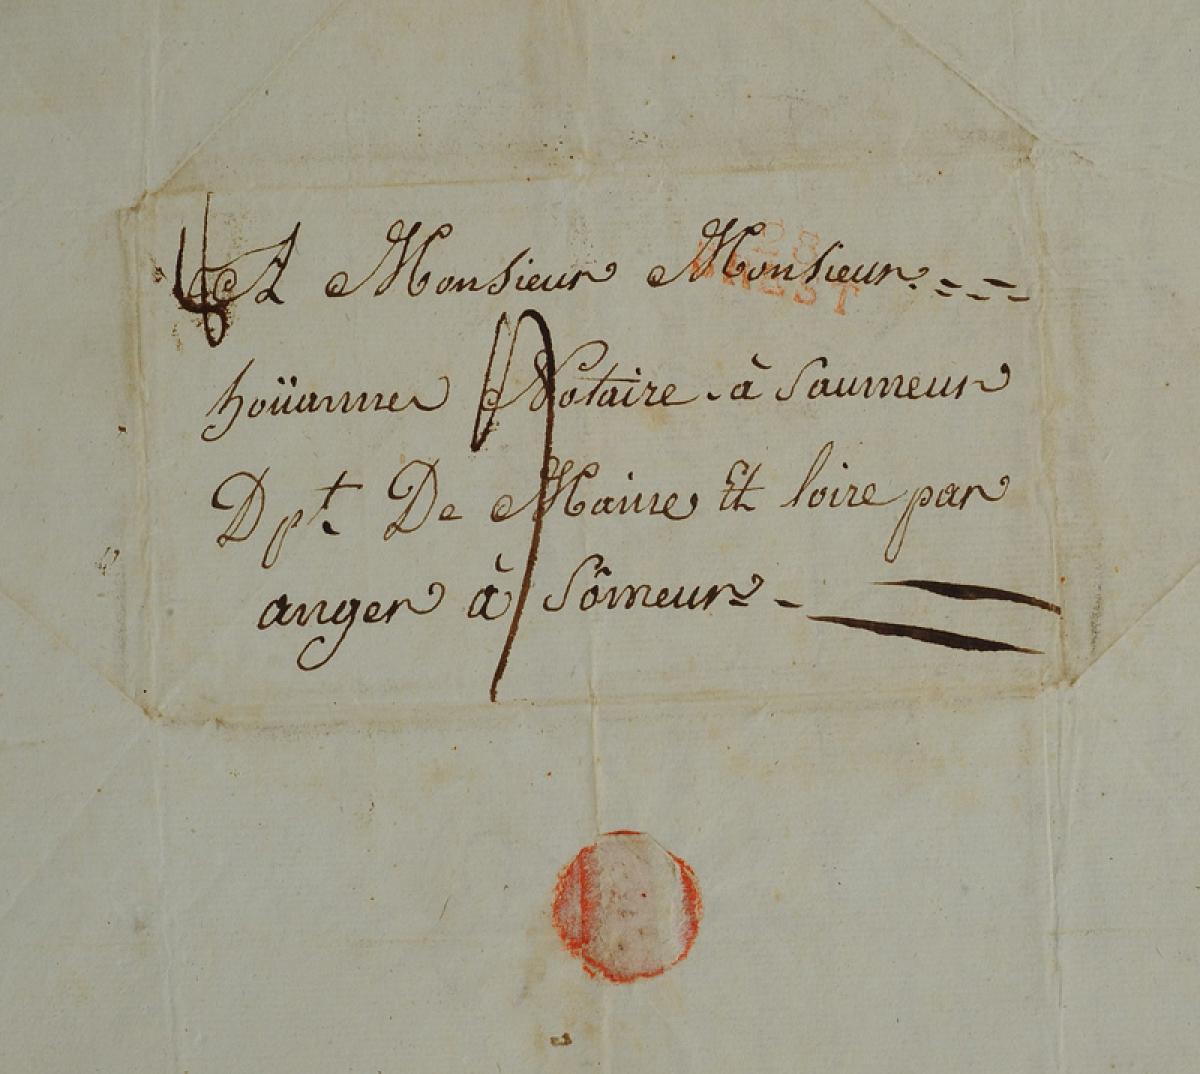 28
BREST
A Monsieur Monsieur
hoüanne Notaire à Saumeur
Dpt. De Maine Et loire par
anger à Sômeur